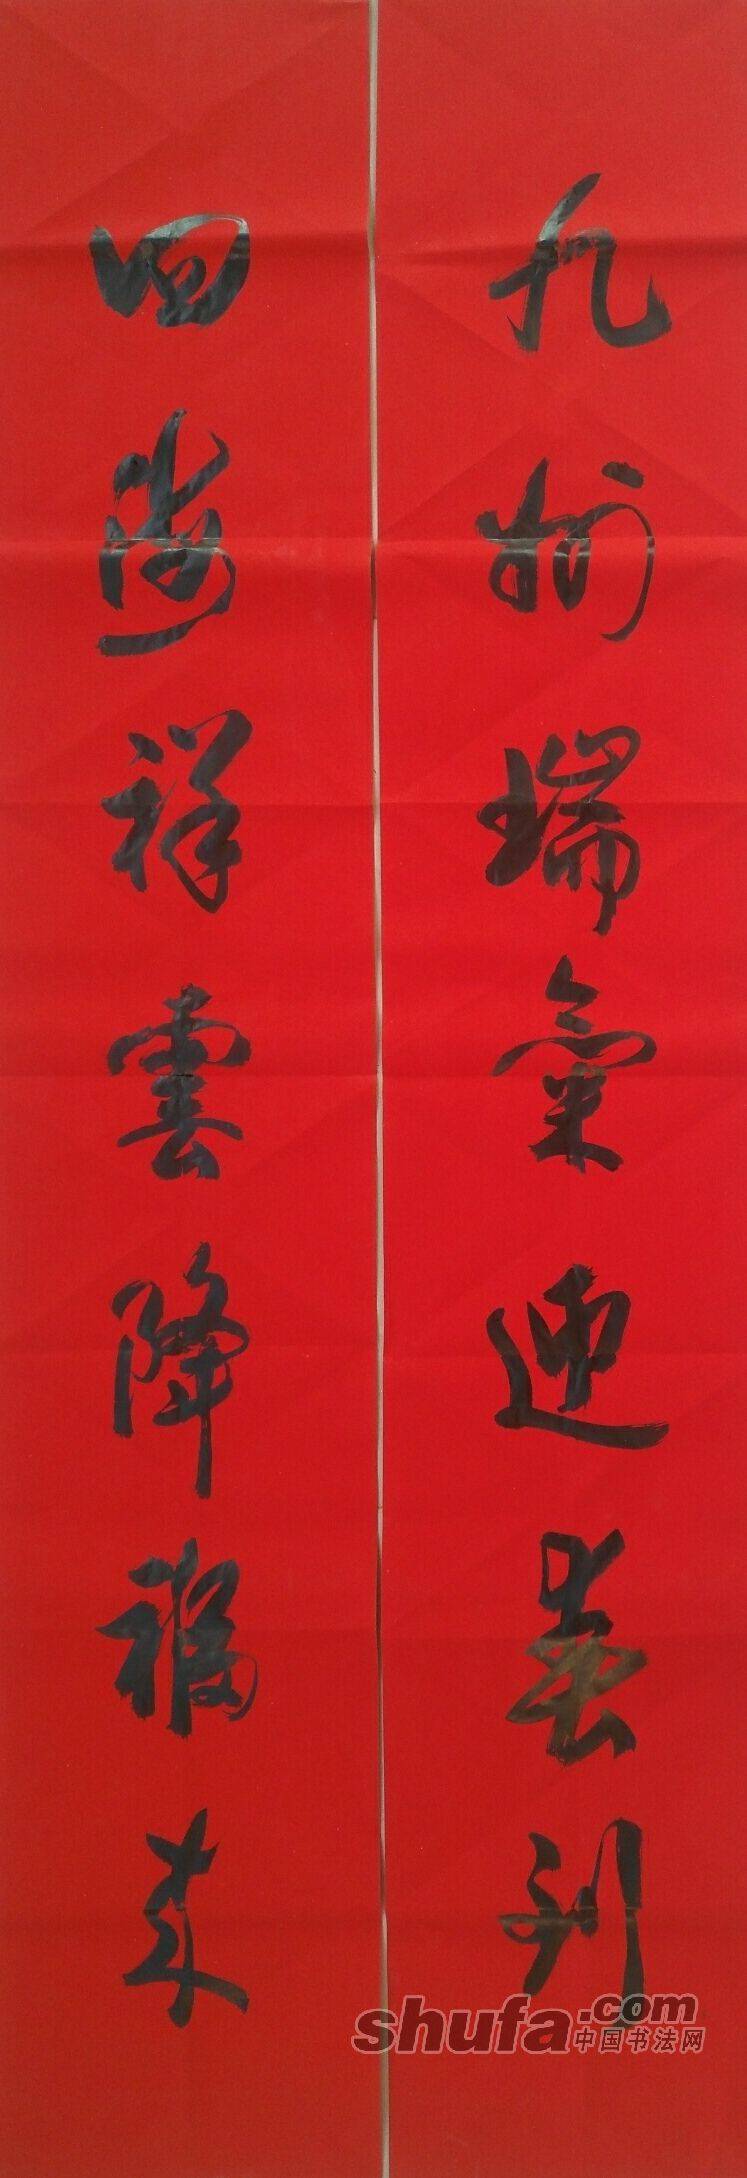 九州瑞氣迎春到
四海祥雲降福来
shufa.com
中国书法网